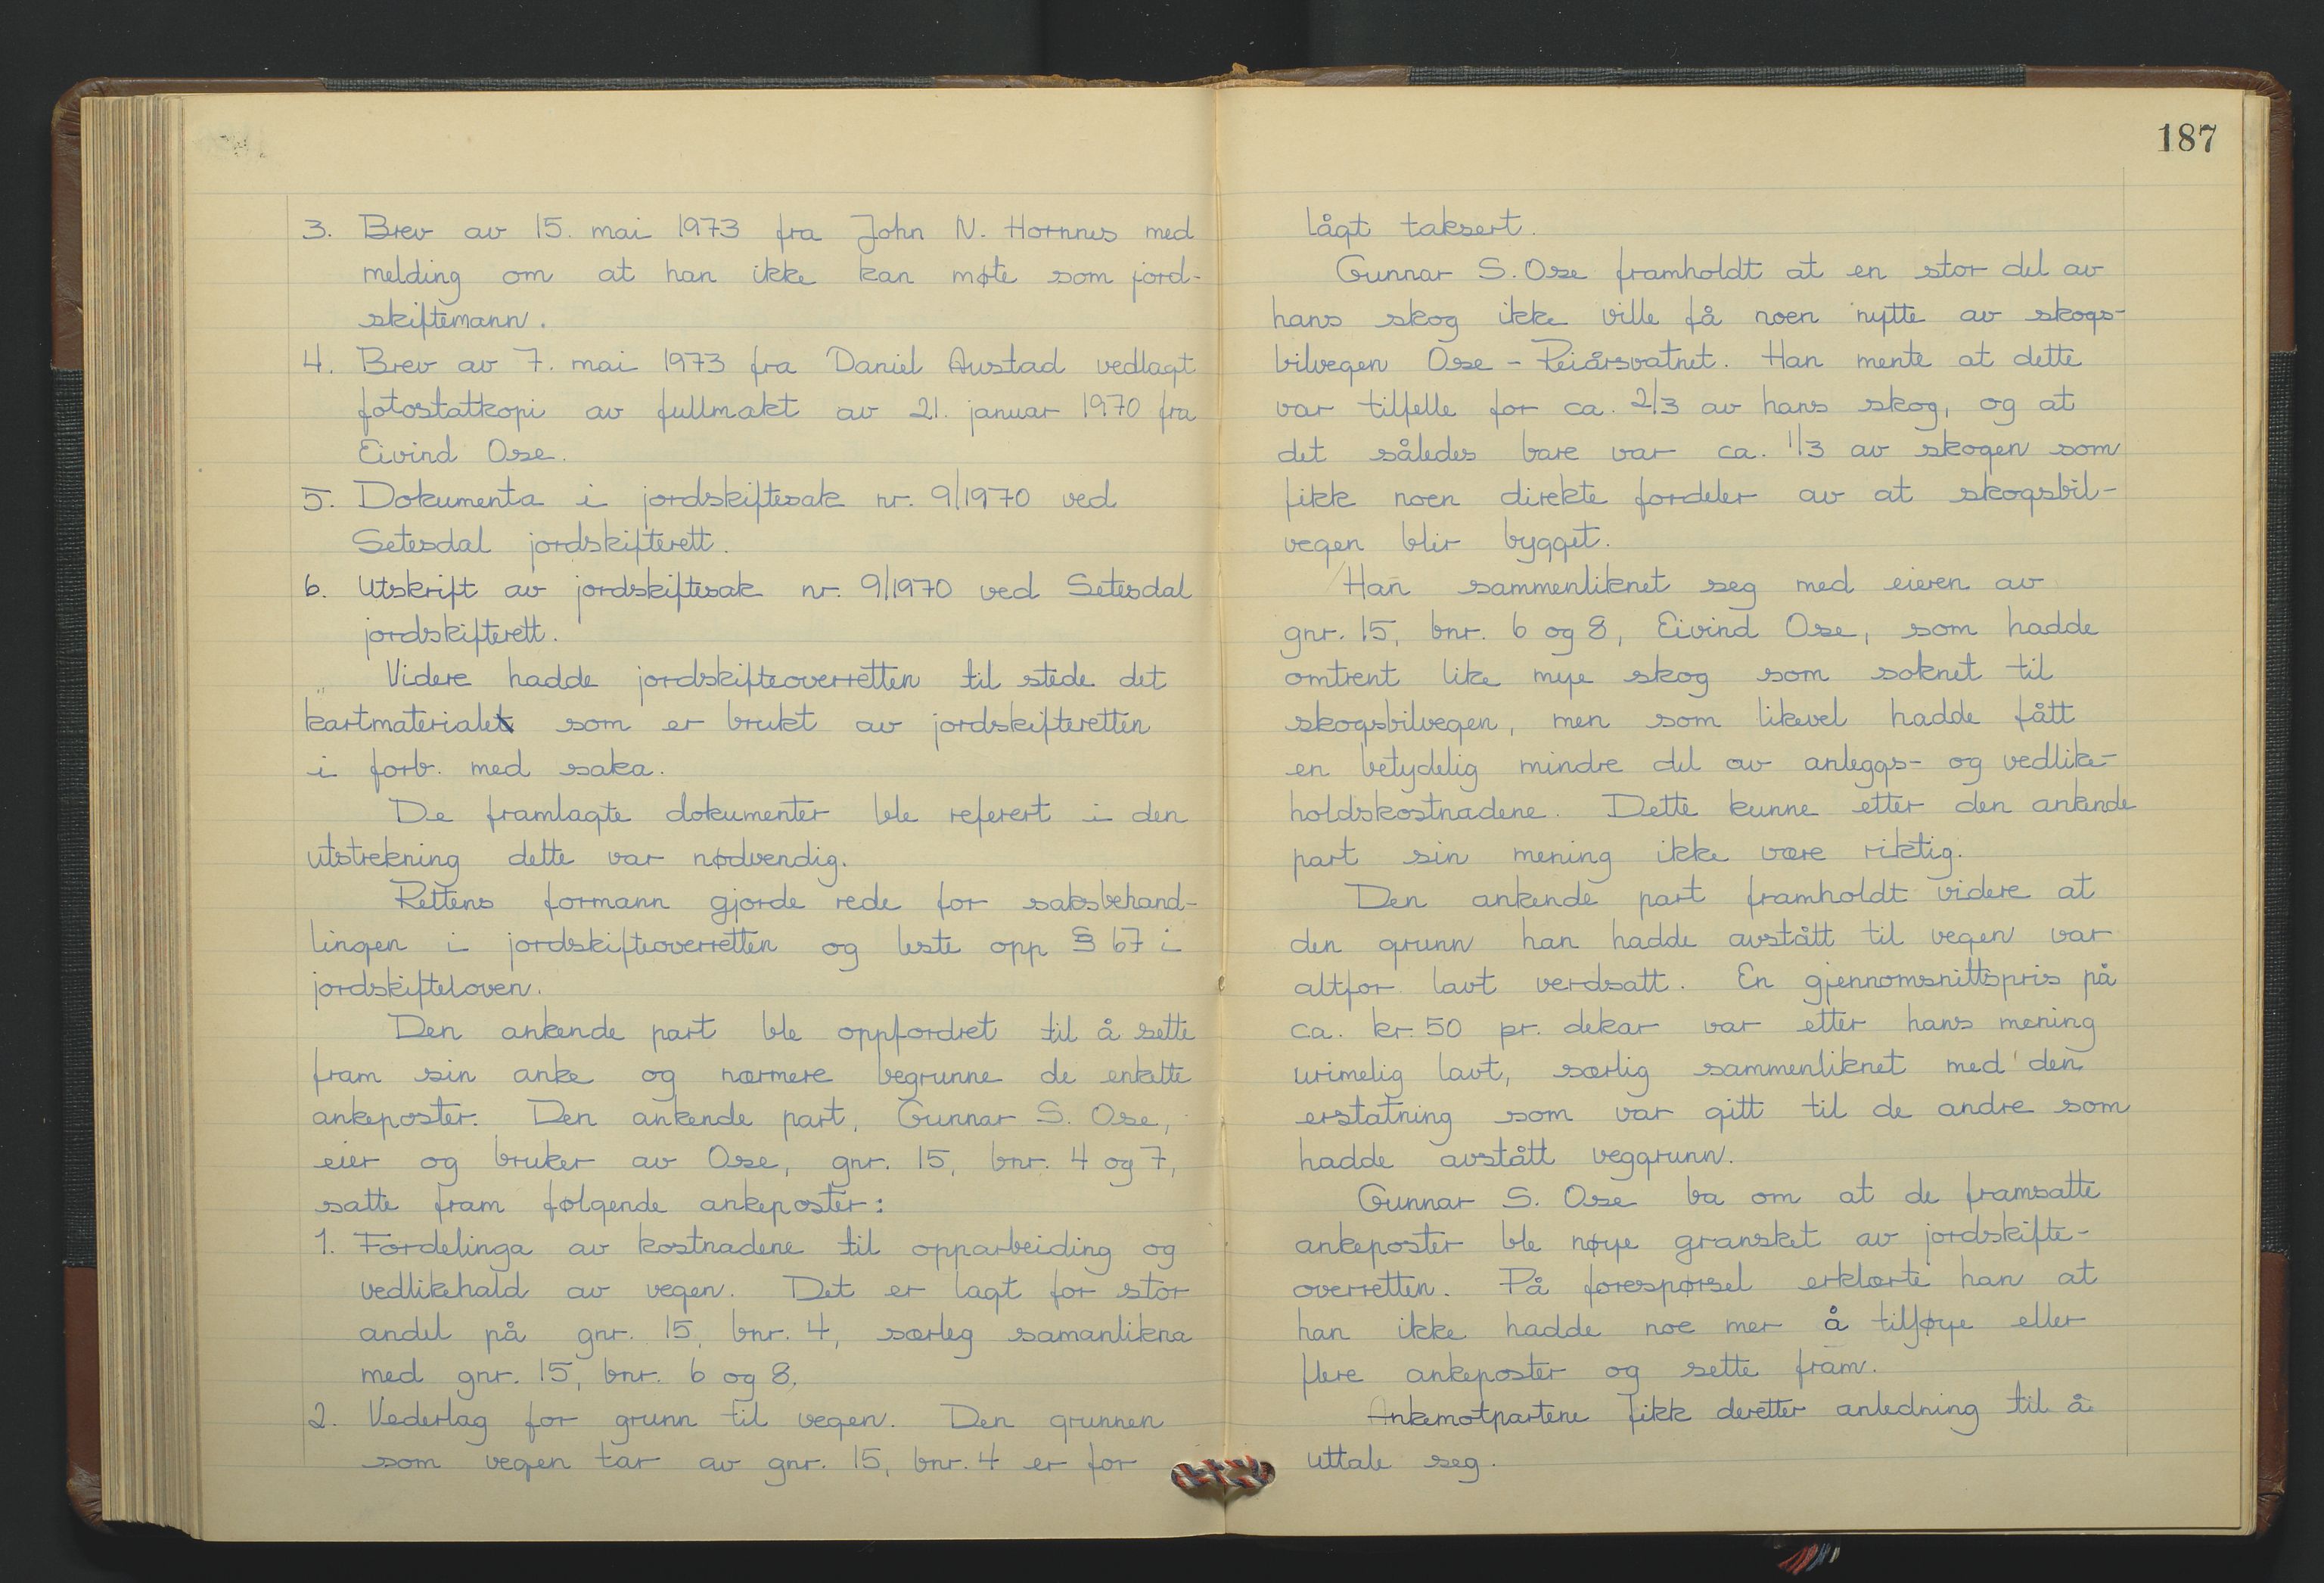 3. Brev av 15. mai 1973 fra John N. Hornnes med
melding om at han ikke kan møte som jord-
skiftemann.
4. Brev av 7. mai 1973 fra Daniel Austad vedlagt
fotostatkopi av fullmakt av 21. januar 1970 fra
Eivind Ose.
5. Dokumenta i jordskiftesak nr. 9/1970 ved
Setesdal jordskifterett.
6. Utskrift av jordskiftesak nr. 9/1970 ved Setesdal
jordskifterett.
Videre hadde jordskifteoverretten til stede det
kartmateriale som er brukt av jordskifteretten
i forb. med saka.
De framlagte dokumenter ble referert i den
utstrekning dette var nødvendig.
Rettens formann gjorde rede for saksbehand-
lingen i jordskifteoverretten og leste opp § 67 i
jordskifteloven.
Den ankende part ble oppfordret til å sette
fram sin anke og nærmere begrunne de enkelte
ankeposter. Den ankende part, Gunnar S. Ose,
eier og bruker av Ose, gnr. 15, bnr. 4 og 7,
satte fram følgende ankeposter:
1. Fordelinga av kostnadene til opparbeiding og
vedlikehald av vegen. Det er lagt for stor
andel på gnr. 15, bnr. 4, særleg samanlikna
med gnr. 15, bnr. 6 og 8.
2. Vederlag for grunn til vegen. Den grunnen
som vegen tar av gnr. 15, bnr. 4 er for
187
lågt taksert.
Gunnar S. Ose framholdt at en stor del av
hans skog ikke ville få noen nytte av skogs-
bilvegen Ose - Reiårsvatnet. Han mente at dette
var tilfelle for ca. 2/3 av hans skog, og at
det således bare var ca. 1/3 av skogen som
fikk noen direkte fordeler av at skogsbil-
vegen blir bygget.
Han sammenliknet seg med eieren av
gnr. 15, bnr. 6 og 8, Eivind Ose, som hadde
omtrent like mye skog som soknet til
skogsbilvegen, men som likevel hadde fått
en betydelig mindre del av anleggs- og vedlike-
holdskostnadene. Dette kunne etter den ankende
part sin mening ikke være riktig.
Den ankende part framholdt videre at
den grunn han hadde avstått til vegen var
altfor lavt verdsatt. En gjennomsnittspris på
ca. kr. 50 pr. dekar var etter hans mening
urimelig lavt, særlig sammenliknet med den
erstatning som var gitt til de andre som
hadde avstått veggrunn.
Gunnar S. Ose ba om at de framsatte
ankeposter ble nøye gransket av jordskifte-
overretten. På forespørsel erklærte han at
han ikke hadde noe mer å tilføye eller
flere ankeposter og sette fram.
Ankemotpartene fikk deretter anledning til å
uttale seg.